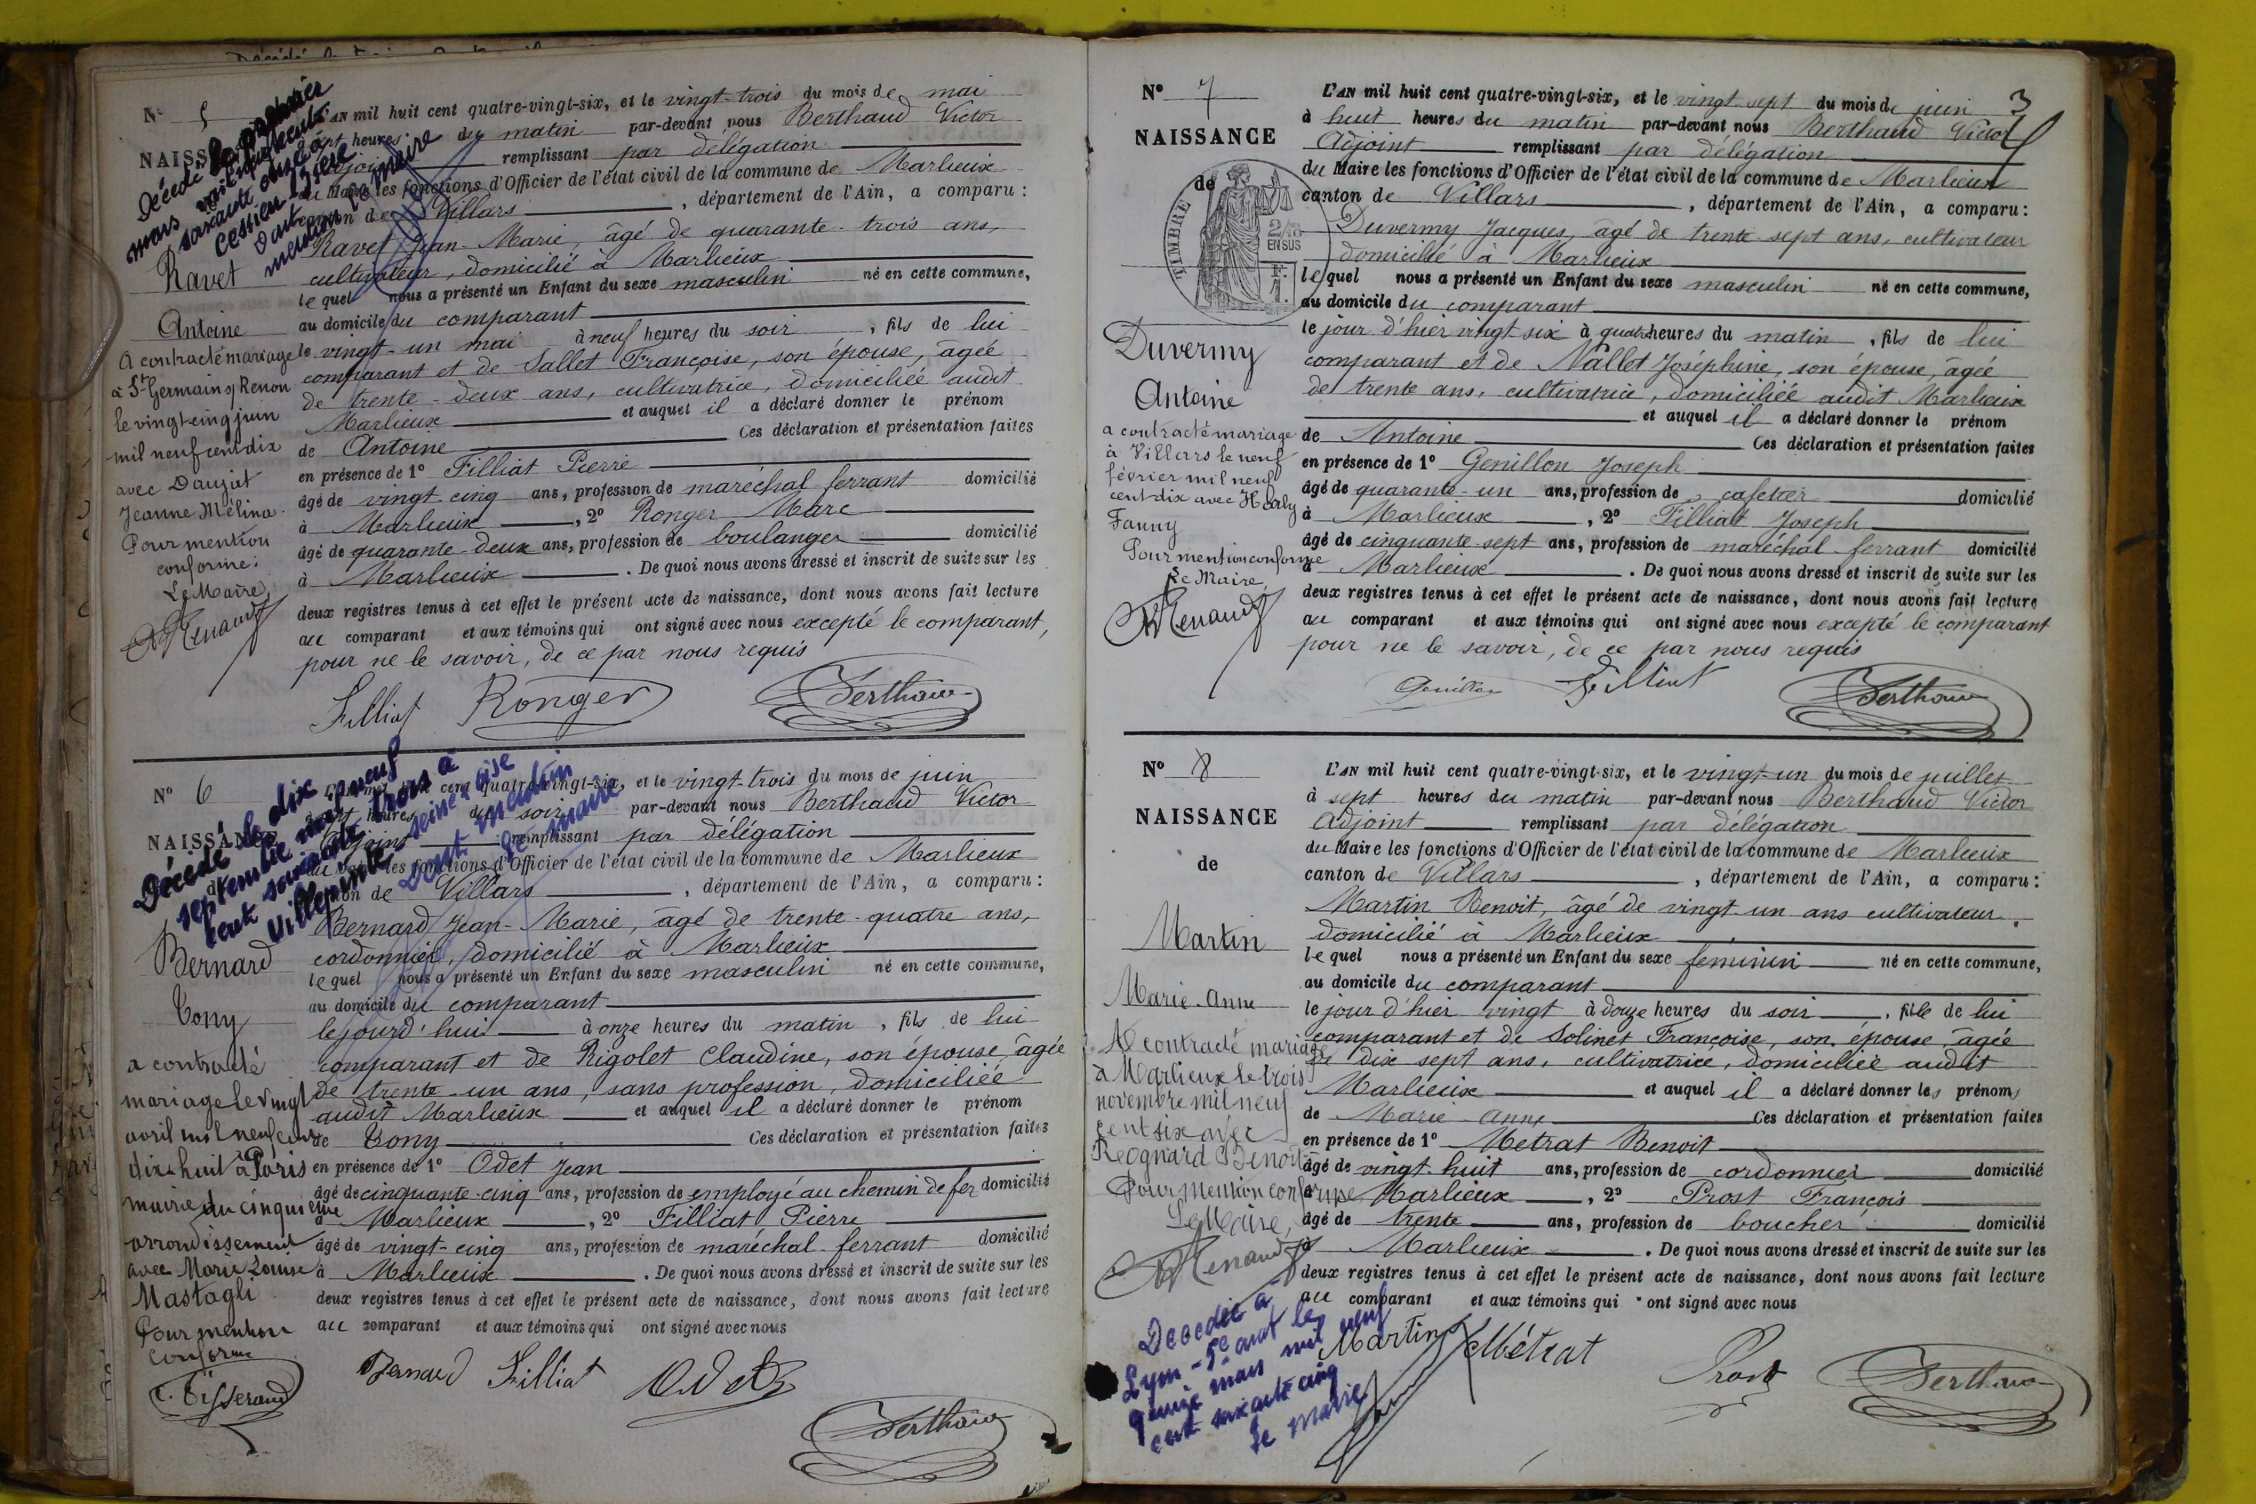 N° 5
L'AN mil huit cent quatre-vingt-six, et le vingt-trois du mois de mai
heures du matin par-devant nous Berthaud Victor
NAISSANCE
Adjoint remplissant par délégation
du Maire les fonctions d'Officier de l'état civil de la commune de Marlieux
canton de Villars, département de l'Ain, a comparu :
Ravet Jean-Marie, âgé de quarante-trois ans,
cultivateur, domicilié à Marlieux
lequel nous a présenté un Enfant du sexe masculin né en cette commune,
au domicile du comparant
le vingt-un mai à neuf heures du soir, fils de lui
comparant et de Sallet Françoise, son épouse, âgée
de trente-deux ans, cultivatrice, domiciliée audit
Marlieux et auquel il a déclaré donner le prénom
de Antoine Ces déclaration et présentation faites
en présence de 1° Filliat Pierre
âgé de vingt-cinq ans, profession de maréchal ferrant domicilié
à Marlieux, 2° Ronger Marc
âgé de quarante-deux ans, profession de boulanger domicilié
à Marlieux. De quoi nous avons dressé et inscrit de suite sur les
deux registres tenus à cet effet le présent acte de naissance, dont nous avons fait lecture
au comparant et aux témoins qui ont signé avec nous excepté le comparant,
pour ne le savoir, de ce par nous requis
Filliat Ronger Berthaud
Décédé le premier
mars mil neuf cent
soixante
Dont
mention le maire
Ravet
Antoine
A contracté mariage
à St Germain s/ Renon
le vingt-cinq juin
mil neuf cent dix
avec Daujat
Jeanne Mélina
Pour mention
conforme :
Le Maire,
A Renaud
N° 6
L'AN mil huit cent quatre-vingt-six, et le vingt-trois du mois de juin
heures du soir par-devant nous Berthaud Victor
NAISSANCE
Adjoint remplissant par délégation
du Maire les fonctions d'Officier de l'état civil de la commune de Marlieux
canton de Villars, département de l'Ain, a comparu :
Bernard Jean-Marie, âgé de trente-quatre ans,
cordonnier, domicilié à Marlieux
lequel nous a présenté un Enfant du sexe masculin né en cette commune,
au domicile du comparant
le jourd'hui à onze heures du matin, fils de lui
comparant et de Rigolet Claudine, son épouse, âgée
de trente-un ans, sans profession, domiciliée
audit Marlieux et auquel il a déclaré donner le prénom
de Tony Ces déclaration et présentation faites
en présence de 1° Odet Jean
âgé de cinquante-cinq ans, profession de employé au chemin de fer domicilié
à Marlieux, 2° Filliat Pierre
âgé de vingt-cinq ans, profession de maréchal ferrant domicilié
à Marlieux. De quoi nous avons dressé et inscrit de suite sur les
deux registres tenus à cet effet le présent acte de naissance, dont nous avons fait lecture
au comparant et aux témoins qui ont signé avec nous
Bernard Filliat Odet
Berthaud
Décédé le dix neuf
septembre mil neuf
cent soixante trois à
Villepinte Seine & Oise
Dont mention
Le Maire
Bernard
Tony
a contracté
mariage le vingt
avril mil neuf cent
dix-huit à Paris
mairie du cinquième
arrondissement
avec Marie Louise
Mastagli
Pour mention
conforme
C. Tisserand
N° 7
L'AN mil huit cent quatre-vingt-six, et le vingt-sept du mois de juin
3
à huit heures du matin par-devant nous Berthaud Victor
NAISSANCE
de
Adjoint remplissant par délégation
du Maire les fonctions d'Officier de l'état civil de la commune de Marlieux
canton de Villars, département de l'Ain, a comparu :
TIMBRE
2/10
EN SUS
Duvermy Jacques, âgé de trente-sept ans, cultivateur
domicilié à Marlieux
lequel nous a présenté un Enfant du sexe masculin né en cette commune,
au domicile du comparant
le jour d'hier vingt six à quatre heures du matin, fils de lui
comparant et de Nallet Joséphine, son épouse, âgée
de trente ans, cultivatrice, domiciliée audit Marlieux
et auquel il a déclaré donner le prénom
de Antoine Ces déclaration et présentation faites
en présence de 1° Genillon Joseph
âgé de quarante-un ans, profession de cafetier domicilié
à Marlieux, 2° Filliat Joseph
âgé de cinquante-sept ans, profession de maréchal-ferrant domicilié
à Marlieux. De quoi nous avons dressé et inscrit de suite sur les
deux registres tenus à cet effet le présent acte de naissance, dont nous avons fait lecture
au comparant et aux témoins qui ont signé avec nous excepté le comparant
pour ne le savoir, de ce par nous requis
Genillon Filliat Berthaud
Duvermy
Antoine
a contracté mariage
à Villars le neuf
février mil neuf
cent dix avec
Fanny
Pour mention conforme
Le Maire,
A Renaud
N° 8
L'AN mil huit cent quatre-vingt-six, et le vingt-un du mois de juillet
à sept heures du matin par-devant nous Berthaud Victor
NAISSANCE
de
Adjoint remplissant par délégation
du Maire les fonctions d'Officier de l'état civil de la commune de Marlieux
canton de Villars, département de l'Ain, a comparu :
Martin Benoit, âgé de vingt-un ans cultivateur
domicilié à Marlieux
lequel nous a présenté un Enfant du sexe féminin né en cette commune,
au domicile du comparant
le jour d'hier vingt à douze heures du soir, fille de lui
comparant et de Solinet Françoise, son épouse, âgée
de dix sept ans, cultivatrice, domiciliée audit
Marlieux et auquel il a déclaré donner les prénoms
de Marie-Anne Ces déclaration et présentation faites
en présence de 1° Metrat Benoit
âgé de vingt-huit ans, profession de cordonnier domicilié
à Marlieux, 2° Prost François
âgé de trente ans, profession de boucher domicilié
à Marlieux. De quoi nous avons dressé et inscrit de suite sur les
deux registres tenus à cet effet le présent acte de naissance, dont nous avons fait lecture
au comparant et aux témoins qui ont signé avec nous
Martin Métrat Prost Berthaud
Martin
Marie-Anne
A contracté mariage
à Marlieux le trois
novembre mil neuf
cent six avec
Reognard Benoit
Pour mention conforme
Le Maire,
A Renaud
Décédée à
Lyon-5e art le
quinze mars mil neuf
cent soixante cinq
le Maire